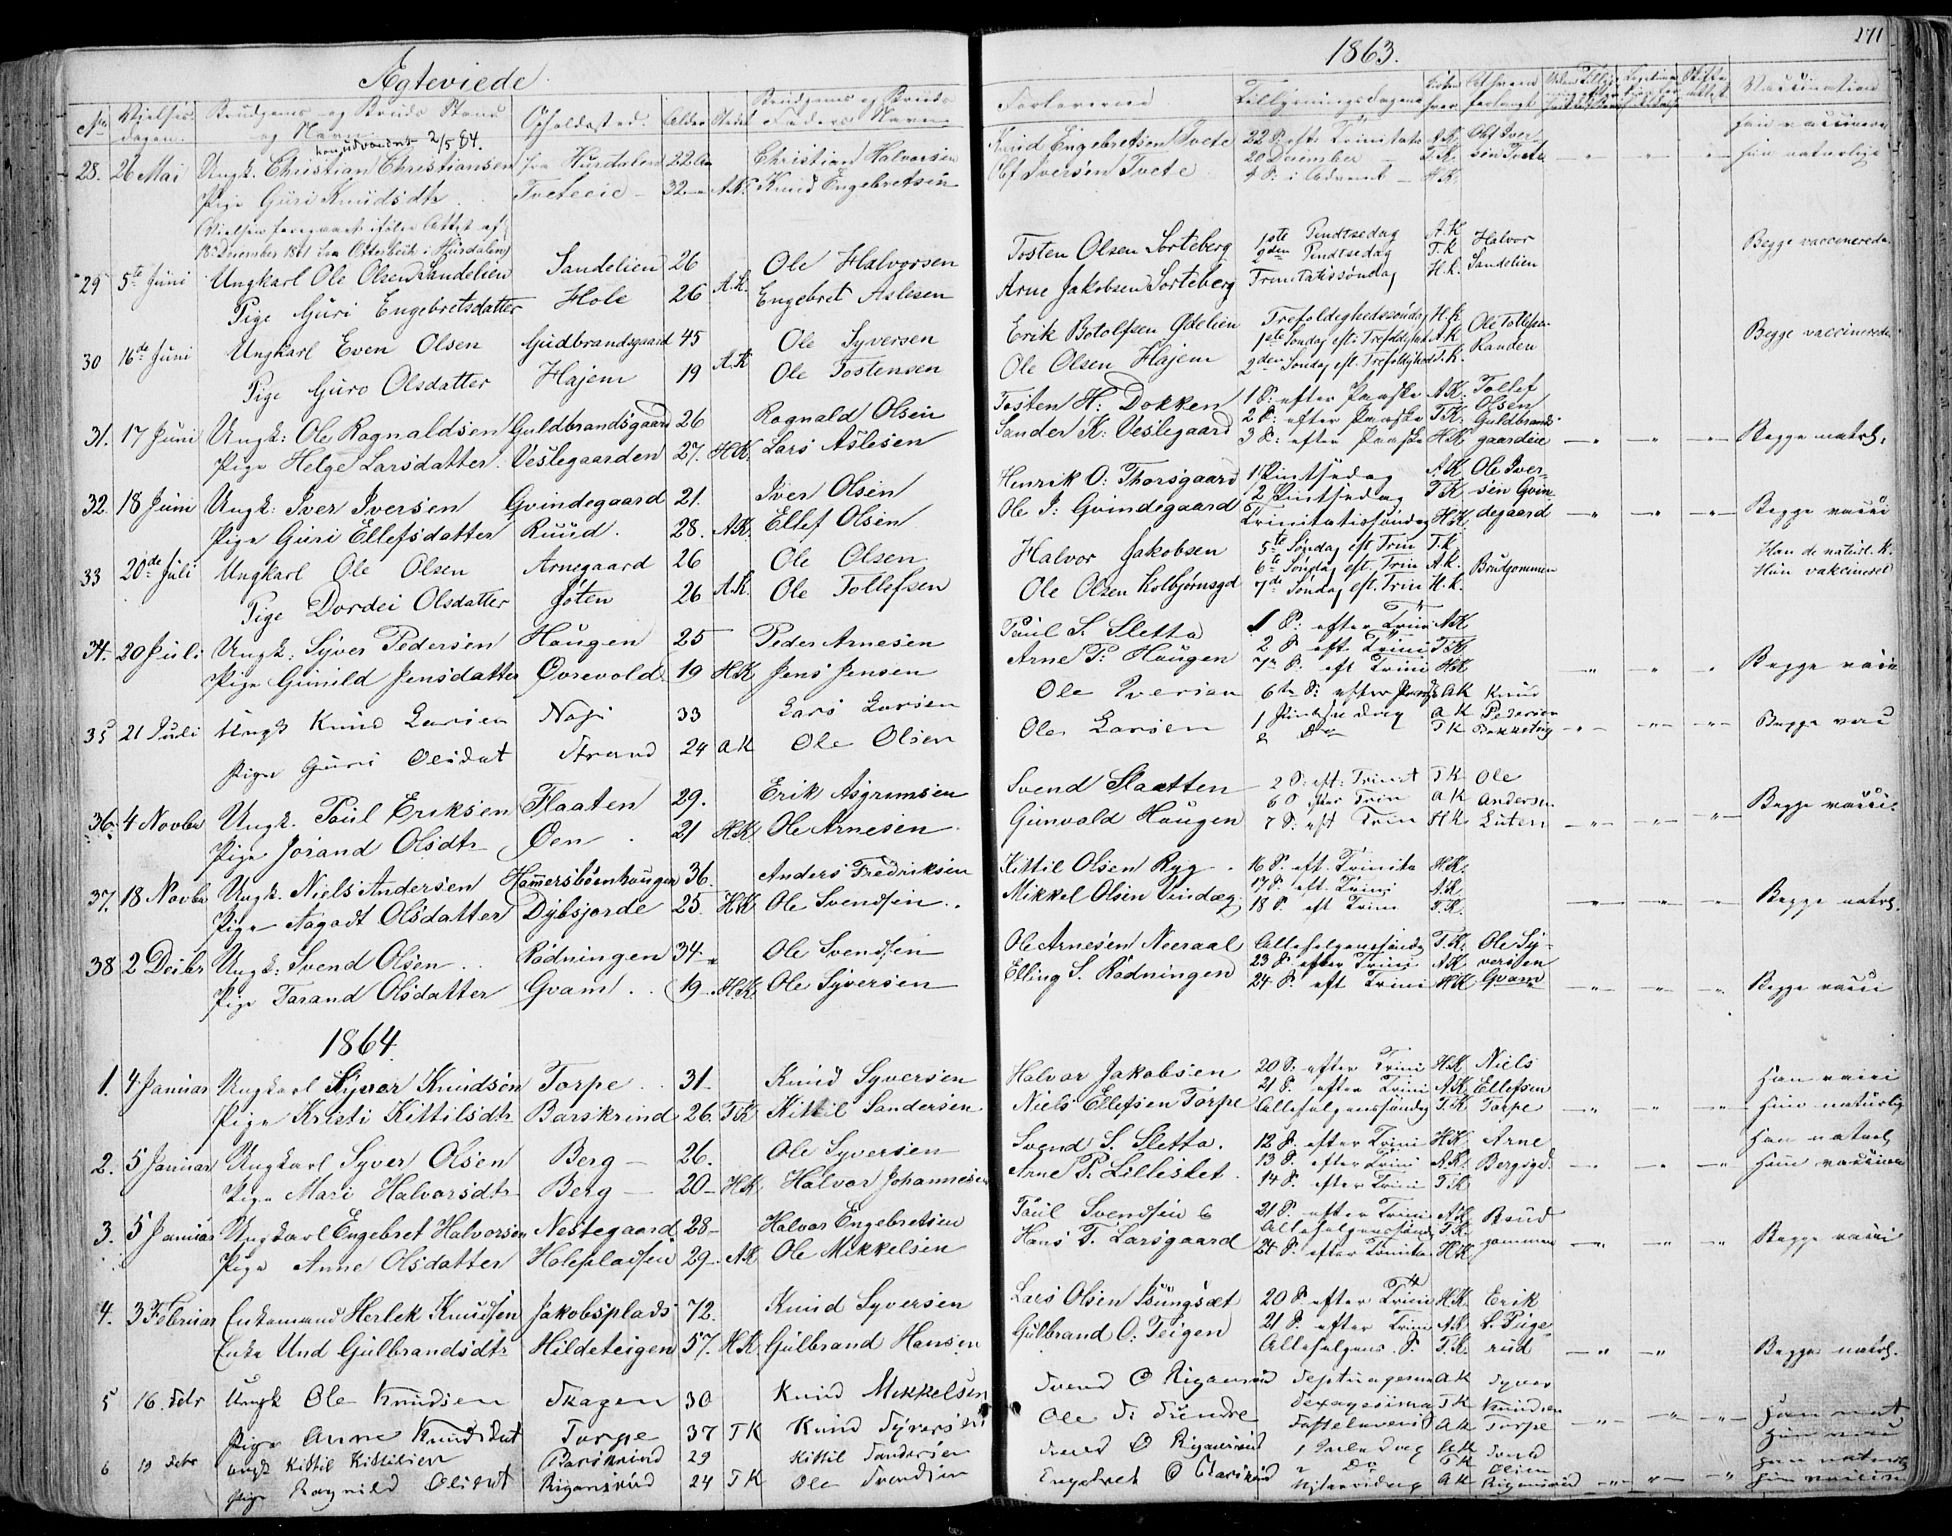 Ægteviede.
1863.
271
No Vielses dagen. Brudgoms og Bruds Stand og Navn Opholdssted. Alder Stedet Brudgoms og Bruds Faders Navn Forloverne Tillysningsdagene Vaccination
2/5 84.
28. 26 Mai Ungk. Christian Christiansen fra Hursdalen 22 Christian Halvorsen Knud Engebretsen Tvete 22 S. eft. Trinitatis A.K. Olsf Iver-
Pige Guri Knudsdtr Tveteeie 32 A.K. Knud Engebretsen Olsf Iversen Tvete 20 December T.K. sen Tvete
4 S: i Advent H.K.
18 December 1861
29 5te Juni Ungkarl Ole Olsen Sandelien Sandelien 26 Ole Halvorsen Tosten Olsen Sorteberg 1ste Pindsedag A.K Halvor Begge vaccinerede
Pige Guri Engebretsdatter Hole 26 A.K. Engebret Aslesen Arne Jakobsen Sorteberg 2den Pindsedag T.K Sandelien
Trinitatissøndag H.K.
30 16de Juni Ungkarl Even Olsen Gudbrandsgaard 45 Ole Syversen Erik Botolfsen Ødelien Trefoldighedssøndag H.K. Ole Tollefsen Begge vaccinerede
Pige Guro Olsdatter Hajem 19 A.K Ole Tostensen Ole Olsen Hajem 1ste Søndag eft. Trefoldighed A.K. Randen
2den Søndag eft. Trefoldighed T.K.
31. 17 Juni Ungk: Ole Ragnaldsen Guldbrandsgaard 26 Ragnald Olsen Tosten H: Dokken 1 S: efter Paaske A.K: Tollef
Pige Helge Larsdatter. Veslegaarden 27. H.K. Lars Aslesen Sander K: Veslegaard 2 S: efter Paaske T.K: Olsen Guldbrands-
3 S: efter Paaske H.K. gaardeie Begge natrl.
32. 18 Juni Ungk: Iver Iversen Gvindegaard 21. Iver Olsen Henrik O: Thorsgaard 1 Pintsedag A.K Ole Iver-
Pige Guri Ellefsdatter Ruud. 28. A.K. Ellef Olsen Ole I: Gvindegaard 2 Pintsedag T.K sen Gvin-
Trinitatissøndag H.K. degaard Begge vacci
33 20de Juli Ungkarl Ole Olsen Arnegaard 26 Ole Olsen Halvor Jakobsen 5te Søndag eft Trin T.K. Han de naturl. K.
Pige Dordei Olsdatter Jøten 26 A.K Ole Tollefsen Ole Olsen Kolbjørnsgd 6te Søndag eft. Trin A.K. Brudgommen Hun vakcineret
7de Søndag eft. Trin H.K.
34. 20 Juli Ungk: Syver Pedersen Haugen 25 Peder Arnesen Paul S. Sletto 1 S: efter Trini A.K
Pige Gunild Jensdatter Øvrevold. 19 H.K Jens Jensen Arne P: Haugen 2 S eft Trini T.K
7de S. eft Trini H.K Begge vacci
35 21 Juli Ungk Knud Larsen 33 Lars Larsen Ole Iversen 6te S: efter Paaske A K Knud
Pige Guri Olsdat Strand 24 A K Ole Olsen Ole Larsen 1 Pintsedag A K Pedersen
2 Do T K Begge vac
36 4 Novbr Ungk. Paul Eriksen Flaaten 29. Erik Asgrimsen Svend Slaatten 2 S: eft: Trinit T K Ole
Pige Jorand Olsdtr Øen 21 H.K Ole Arnesen Gunvald Haugen 6 S efter Trin A K Andersen
7 S: eft Trin H K Luten Begge vacci.
37. 18 Novbr Ungk. Niels Andersen Hamersbøenhaugen 36. Anders Fredriksen Kittil Olsen Ryg 16 S. eft. Trinita H.K.
Pige Aagodt Olsdatter Dybsjorde 25. H.K Ole Svendsen Mikkel Olsen Vindæg 17 S. eft. Trini A.K
18 S. eft Trini T.K. Begge natrl.
38 2 Decbr Ungk: Svend Olsen Rødningen 34 Ole Svendsen Ole Arnesen Neeraal Allehelgenssøndag T.K. Ole Sy-
Pige Tarand Olsdatter Gvam 19 H.K Ole Syversen Elling S. Rødningen 23 S. efter Trini A.K versen
24 S. eft Trini H.K Gvam Begge vacci
1864.
1. 4 Januar Ungkarl Syver Knudsen Torpe 31 Knud Syversen Halvor Jakobsen 20 S. efter Trini H.K Niels Han vacci
Pige Kristi Kittilsdtr Barskrind 26. T.K Kittil Sandersen Niels Ellefsen Torpe 21 S. efter Trini A.K Ellefsen
Allehelgenssøndag T.K Torpe Hun naturlig
2. 5 Januar Ungkarl Syver Olsen Berg 26. Ole Syversen Svend S. Sletto. 12 S. efter Trini H.K Arne Han naturl
Pige Mari Halvorsdtr Berg 20 H.K Halvor Johannesen Arne P. Lillislet 13 S. efter Trini A.K. Bergsgd. Hun vaccine
14 S. efter Trini T.K
3. 5 Januar Ungkarl Engebret Halvorsen Nestegaard 28 Halvor Engebretsen Paul Svendsen 21 S. efter Trini A.K Brud
Pige Anne Olsdatter Holepladsen 29 A.K Ole Mikkelsen Hans T. Larsgaard Allehelgenssønd T.K. gommen
24 S. efter Trinita H.K Begge vacci
4. 3 Februar Enkemand Herlek Knudsen Jakobsplads 72. Knud Syversen Lars Olsen 20 S. efter Trini H.K Erik
Enke Und Gulbrandsdtr Hildeteigen 57. H.K Gulbrand Hansen Gulbrand O. Teigen 21 S. efter Trini A.K
Allehelgens. S. T.K. rud Begge natrl.
5 16 Febr Ungk Ole Knudsen Skagen 30 Knud Mikkelsen Svend O Rigansrud Septuagesima A K Syver
Pige Anne Knudsdat Torpe 37 T K Knud Syversen Ole S. Sundre Sexagesima T K Knudsen
Fastelavensd A K Torpe Han nat
Hun vac
6 19 Febr Ungk Kittil Kittilsen Barskrind 29 Kittil Sandersen Svend O Rigansrud 1 Juledag A K Svend Han naturl
Pige Ragnild Olsdat Rigansrud 24 T K Ole Svendsen Engebret O Barskrind 2 Do T K Olsen
Nytaarsdag A K Rigansrud Hun vaccine